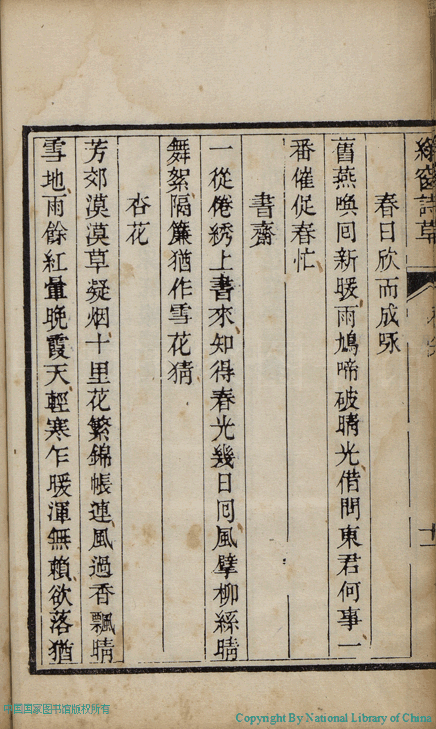 窗詩草
春日欣而成咏
舊燕喚囘新暖雨鳩啼破晴光借問東君何事一
番催促春忙
書齋
一從倦綉上書來知得春光幾日囘風擘柳絲晴
舞絮隔簾猶作雪花猜
杏花
芳郊漠漠草凝烟十里花繁錦帳連風過香飄晴
雪地雨餘紅暈晚霞天輕寒乍暖渾無賴欲落猶
中国国家图书馆版权所有
Copyright By National Library of China